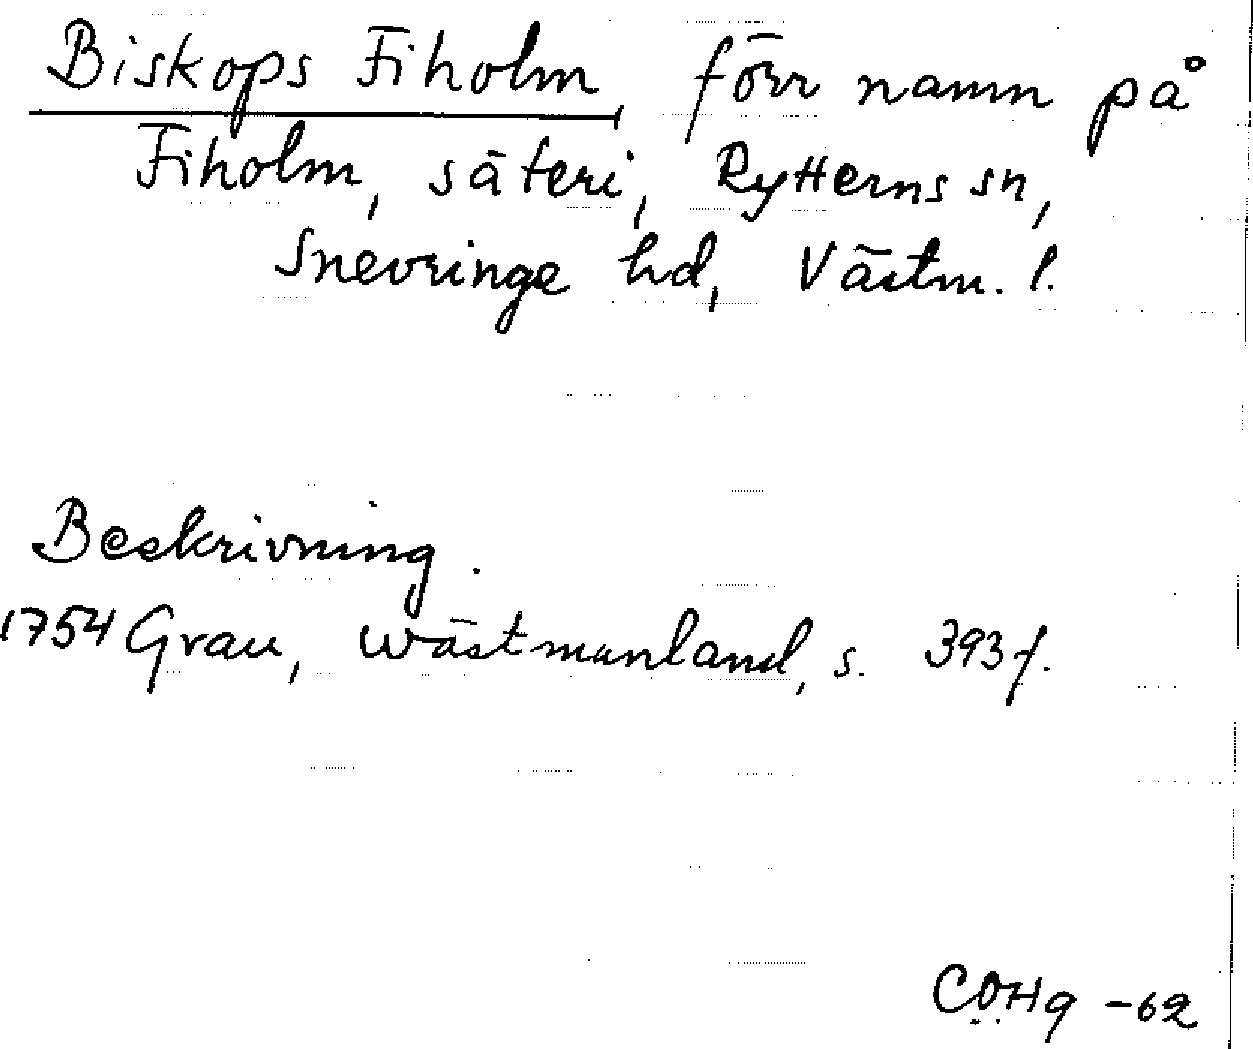 Biskops Fiholm, förr namn på
Fiholm, säteri, Rytterns sn,
Snevringe hd, Västm. l.
Beskrivning.
1754 Grau, Wästmanland, s. 393f.
COHg -62